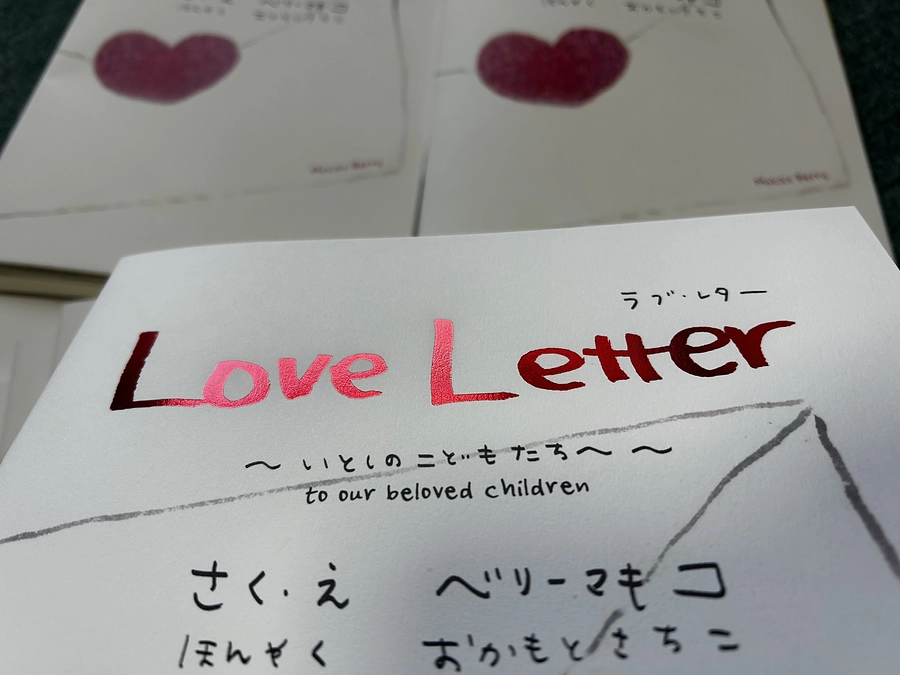 ラブ・レター
Love Letter
～いとしのこどもたち～～
to our beloved children
さく・え ベリーマキコ
ほんやく おかもとさちこ